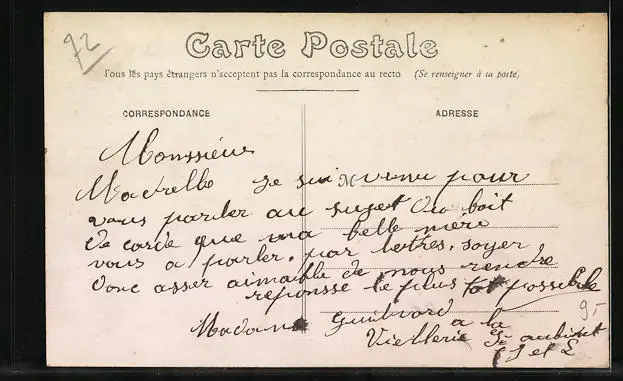 92
Carte Postale
Tous les pays étrangers n'acceptent pas la correspondance au recto (Se renseigner à la poste)
CORRESPONDANCE
ADRESSE
Monssieur
je sui M venu pour
vous parler au sujet du boit
de corde que ma belle mère
vous a parler, par lettres, soyer
donc asser aimable de nous rendre
reponsse le plus tot possible
9-
Madame Guilevard
a la
Viellerie St aubin